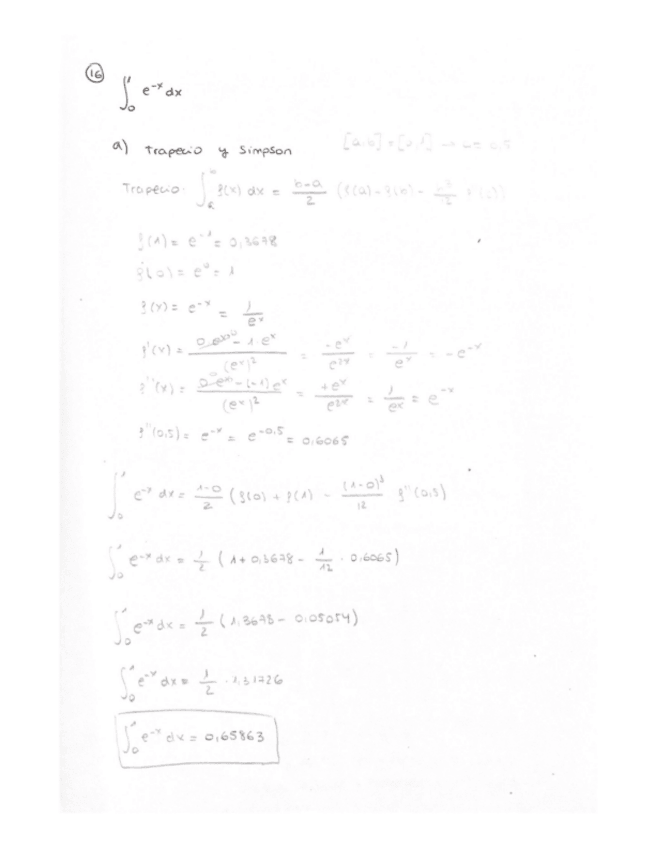 16
∫₀¹ e^{-x} dx
a) Trapecio y Simpson [a,b] = [0,1] → = 0,5
Trapecio: ∫ f(x) dx = b-a/2 (f(a) - f(b) -
f(1) = e^{-1} = 0,3678
f(0) = e⁰ = 1
f(x) = e^{-x} = 1/e^x
f'(x) = 0·e^x - 1·e^x/(e^x)² = -e^x/e^{2x} = -1/e^x = -e^{-x}
f''(x) = 0·e^x - (-1)e^x/(e^x)² = +e^x/e^{2x} = 1/e^x = e^{-x}
f''(0,5) = e^{-x} = e^{-0,5} = 0,6065
∫₀¹ e^{-x} dx = 1-0/2 (f(0) + f(1) - (1-0)³/12 f''(0,5)
∫₀¹ e^{-x} dx = 1/2 (1 + 0,3678 - 1/12 · 0,6065)
∫₀¹ e^{-x} dx = 1/2 (1,3678 - 0,05054)
∫₀¹ e^{-x} dx = 1/2 · 1,31726
∫₀¹ e^{-x} dx = 0,65863